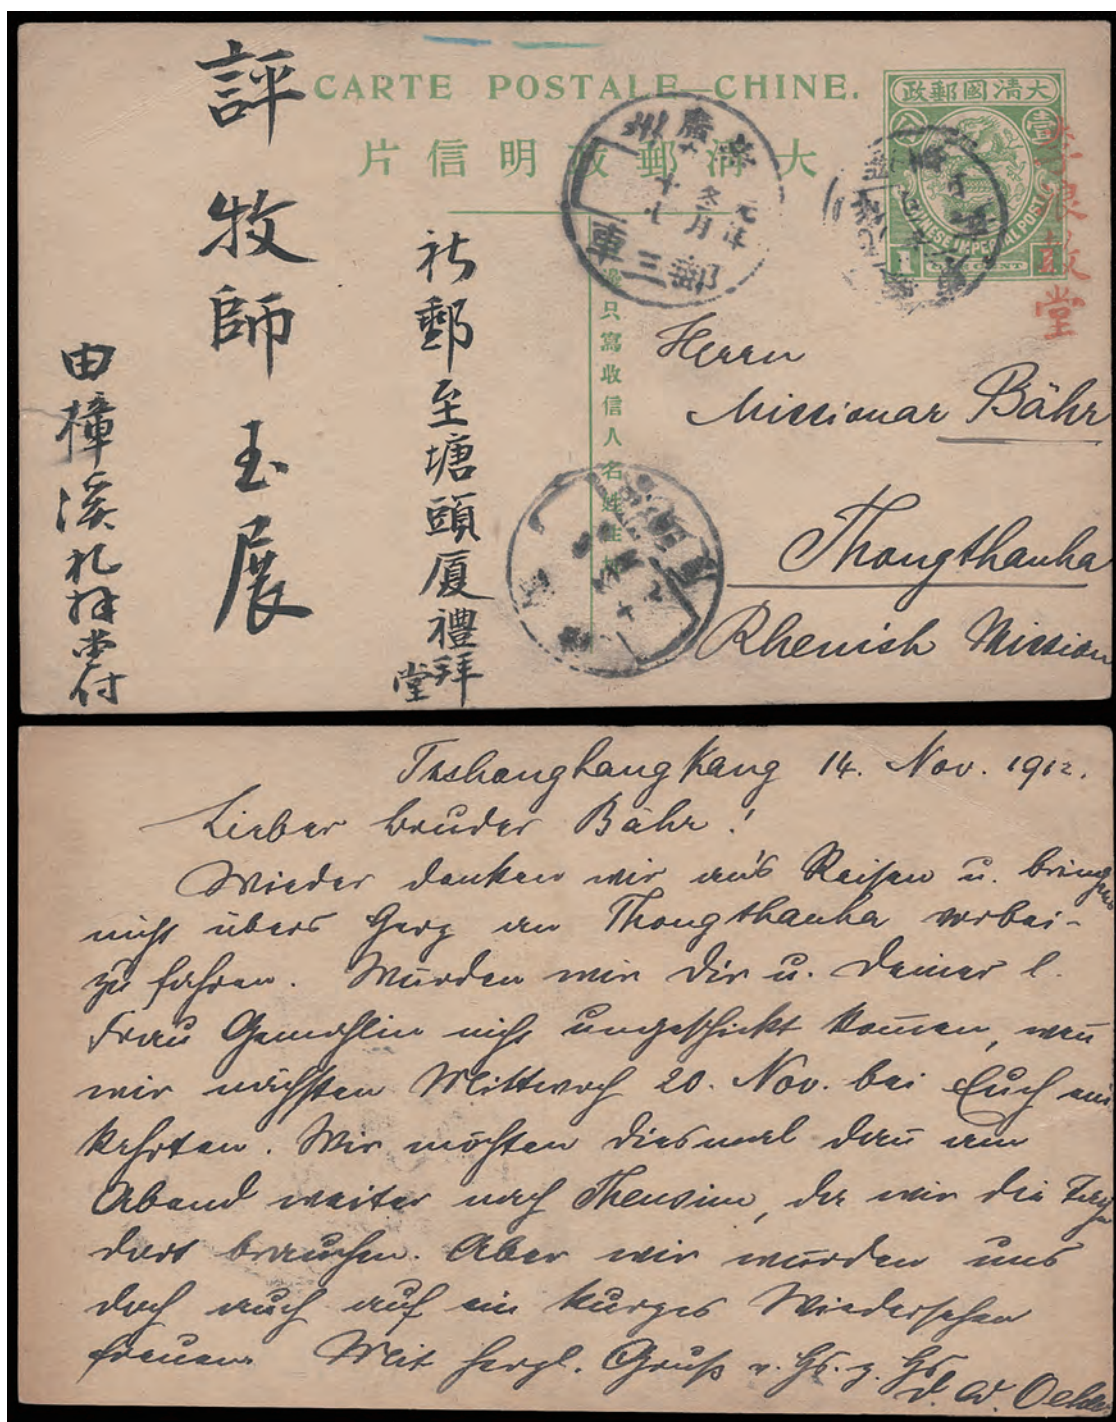 CARTE POSTALE—CHINE.
片信明政郵清大
政郵國清大
壹
CHINESE IMPERIAL POST
1 ONE CENT 1
李浪教堂
只寫收信人名姓住
廣州
元年
冬月
十七
郵三車
評牧師玉展
郵至塘頭厦禮拜堂
由樟溪礼拜堂付
Herrn
Missionar Bähr
Thongthauha
Rhenish Mission
14. Nov. 1912.
Lieber Bruder Bähr!
Wieder denken wir an's Reisen u. bringen
nicht übers Herz an Thongthauha vorbei-
zu fahren. Würden wir Dir u. Deiner l.
Frau Gemahlin nicht ungeschickt kommen, wenn
wir nächsten Mittwoch 20. Nov. bei Euch ein
kehrten. Wir möchten diesmal dann am
Abend weiter nach Thensim, da wir die
dort brauchen. Aber wir würden uns
doch auch auf ein kurzes Wiedersehen
freuen. Mit herzl. Gruß v. Hs. z. Hs.
D. W. Oehler